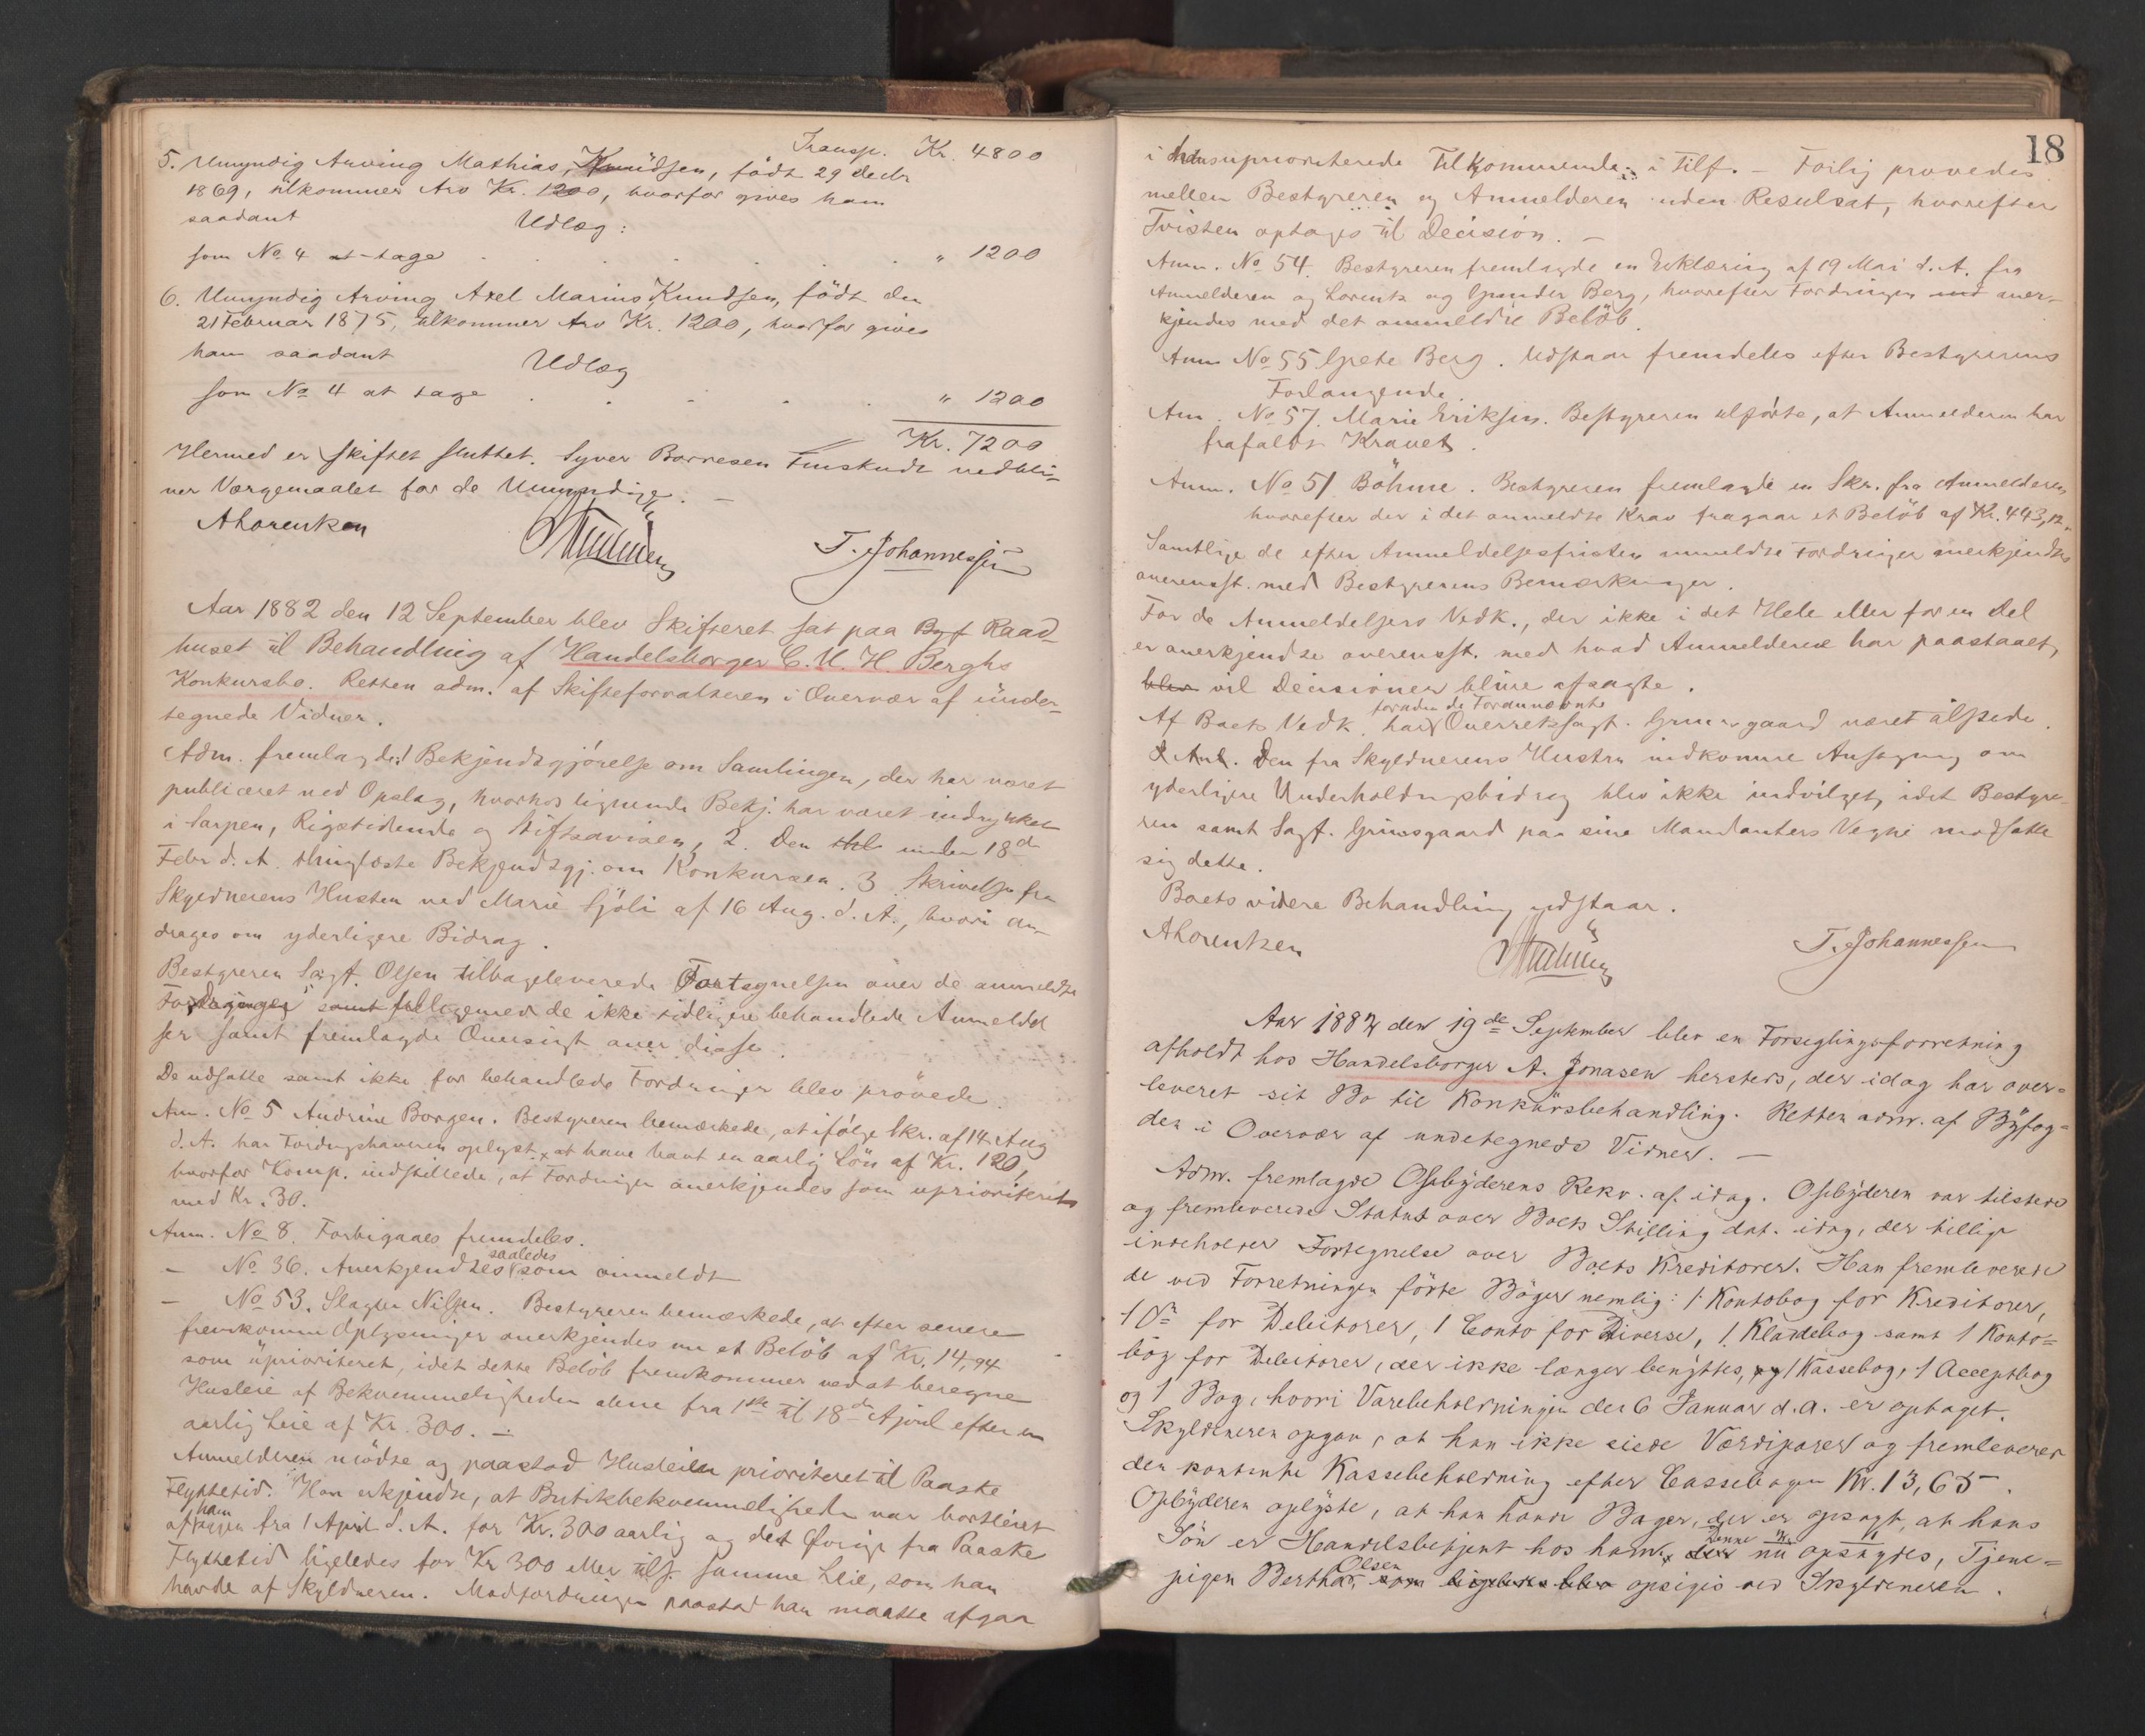 Transp. Kr. 4800
5. Umyndig Arving Mathias Knudsen, født 29 Decbr
1869, tilkommer Arv Kr. 1200, hvorfor gives ham
saadant Udlæg:
som No 4 at tage " 1200
6. Umyndig Arving Axel Marius Knudsen, født den
21 Februar 1875, tilkommer Arv Kr. 1200, hvorfor gives
ham saadant Udlæg
som No 4 at tage " 1200
Kr. 7200
Hermed er Skiftet sluttet. Syver Borresen Tuneskudt vedbli-
ver Værgemaalet for de Umyndige. —
A Lorentzen T. Johannessen
Aar 1882 den 12 September blev Skifteret sat paa Byf Raad-
huset til Behandling af Handelsborger C. U. H. Berghs
Konkursbo. Retten adm. af Skifteforvalteren i Overvær af under-
tegnede Vidner.
Adm. fremlagde: 1 Bekjendtgjørelse om Samlingen, der har været
publiceret ved Opslag, hvorhos lignende Bekj. har været indrykket
i Sarpen, Rigstidende og Stiftsavisen, 2. Den under 18de
Febr d. A. thinglæste Bekjendtgj. om Konkursen. 3 Skrivelse fra
Skyldnerens Hustru ved Marie Sjöli af 16 Aug. d. A., hvori an-
drages om yderligere Bidrag.
Bestyreren Sagf. Olsen tilbageleverede Fortegnelsen over de anmeldte
Fordringer samt tilligemed de ikke tidligere behandlede Anmeldel
ser samt fremlagde Oversigt over disse.
De udsatte samt ikke før behandlede Fordringer blev prøvede.
Anm. No 5 Andrine Borgen. Bestyreren bemærkede, at ifølge Skr. af 14 Aug
d. A. har Fordringshaveren oplyst, at have havt en aarlig Løn af Kr. 120,
hvorfor Komp. indstillede, at Fordringen anerkjendes som uprioriteret
med Kr. 30.
Anm. No 8. Forbigaaes fremdeles.
— No 36. Anerkjendtes saaledes som anmeldt
— No 53. Slagter Nilsen. Bestyreren bemærkede, at efter senere
fremkomne Oplysninger anerkjendes nu et Beløb af Kr. 14,94
som uprioriteret, idet dette Beløb fremkommer ved at beregne
Husleie af Bekvemmeligheden alene fra 1ste til 18de April efter en
aarlig Leie af Kr. 300. —
Anmelderen mødte og paastod Husleien prioriteret til Paaske
Flyttetid. Han erkjendte, at Butikbekvemmeligheden var bortleiet
af ham fra 1 April d. A. for Kr. 300 aarlig og det Øvrige fra Paaske
Flyttetid ligeledes for Kr 300 eller tils. samme Leie, som han
havde af Skyldneren. Modfordringen paastod han maatte afgaa
18
i hans uprioriterede Tilkommende i Tilf. — Forlig prøvedes
mellem Bestyreren og Anmelderen uden Resultat, hvorefter
Tvisten optoges til Decision. —
Anm. No 54. Bestyreren fremlagde en Erklæring af 19 Mai d. A. fra
Anmelderen og Lorentz og Berg, hvorefter Fordringen aner-
kjendes med det anmeldte Beløb.
Anm No 55 Grete Berg. Udstaar fremdeles efter Bestyrerens
Forlangende.
Anm. No 57. Marie Eriksen. Bestyreren tilførte, at Anmelderen har
frafaldt Kravet.
Anm. No 51 Böhme. Bestyreren fremlagde en Skr. fra Anmelderen
hvorefter der i det anmeldte Krav fragaar et Beløb af Kr. 443,12.
Samtlige de efter Anmeldelsesfristen anmeldte Fordringer anerkjendtes
overensst. med Bestyrerens Bemærkninger.
For de Anmeldelsers Vedk., der ikke i det Hele eller for en Del
er anerkjendte overensst. med hvad Anmelderne har paastaaet,
blev vil Decisioner blive afsagte.
Af Boets Vedk. har foruden de Forannævnte Overretssagf. Grimsgaard været tilstede.
Den fra Skyldnerens Hustru indkomne Ansøgning om
yderligere Underholdningsbidrag blev ikke indvilget, idet Bestyre-
ren samt Sagf. Grimsgaard paa sine Mandanters Vegne modsatte
sig dette.
Boets videre Behandling udstaar.
A Lorentzen T. Johannessen
Aar 1882 den 19de September blev en Forseglingsforretning
afholdt hos Handelsborger A. Jonasen hersteds, der idag har over-
leveret sit Bo til Konkursbehandling. Retten adm. af Byfog-
den i Overvær af undetegnede Vidner. —
Adm. fremlagde Opbyderens Rekv. af idag. Opbyderen var tilstede
og fremleverede Status over Boets Stilling dat. idag, der tillige
indeholder Fortegnelse over Boets Kreditorer. Han fremleverede
de ved Forretningen førte Bøger nemlig: 1 Kontobog for Kreditorer,
1 Do for Debitorer, 1 Conto for Diverse, 1 Kladdebog samt 1 Konto-
bog for Debitorer, der ikke længer benyttes, og 1 Kassebog, 1 Acceptbog
og 1 Bog, hvori Varebeholdningen den 6 Januar d. a. er optaget.
Skyldneren opgav, at han ikke eiede Værdipapirer og fremleverer
den kontante Kassebeholdning efter Cassebogen Kr. 13,65.
Opbyderen oplyste, at han havde Bager, der er opsagt, at hans
Søn er Handelsbetjent hos ham, der Denne nu opsagdes, Tjene-
pigen Bertha Olsen, som ligeledes blev opsiges ved Skyldneren.